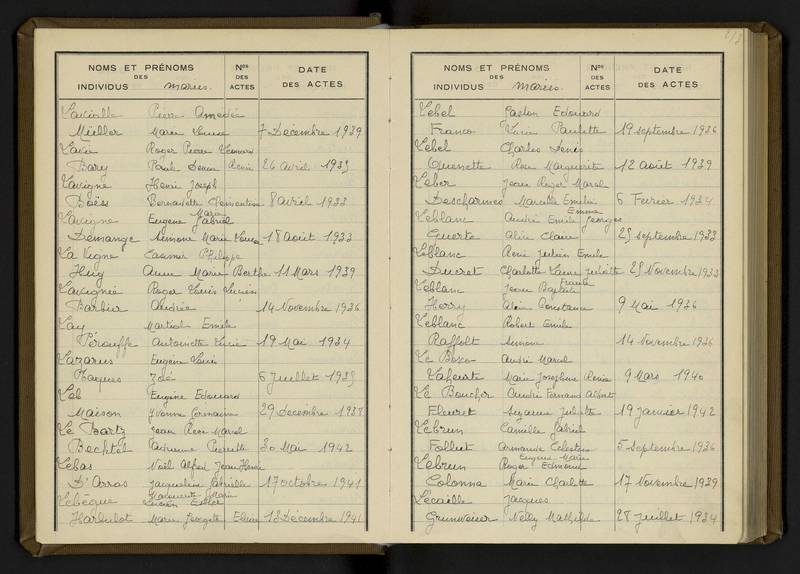 NOMS ET PRÉNOMS DES INDIVIDUS Mariés. Nos DES ACTES DATE DES ACTES
Pierre Amédée
Müller Marie Louise 7 Décembre 1939
Roger Pierre
Bary Paule Denise Renée 26 Avril 1935
Lavigne Henri Joseph
Boës Bernadette Clémentine 8 Avril 1933
Marie
Lavigne Eugène Gabriel
Demange Simone Marie Louise 18 août 1933
La Vigne Casimir Philippe
Hug Anne Marie Berthe 11 Mars 1939
Lavignée Roger Louis Lucien
Barbier Andrée 14 Novembre 1936
Lay Martial Emile
Pérouffe Antoinette Lucie 19 Mai 1934
Lazarus Eugène Louis
Haques Zoé 6 Juillet 1935
Leb Eugène Edouard
Maison Yvonne Germaine 29 Décembre 1938
Le Bartz Jean René Marcel
Bechtel Pierrette 30 Mai 1942
Lebas Noël Alfred Jean Henri
D'Arras Jacqueline Gabrielle 17 octobre 1941
Marguerite Marie
Lebègue Lucien
Harbulot Marie Georgette 13 Décembre 1941
NOMS ET PRÉNOMS DES INDIVIDUS Mariés. Nos DES ACTES DATE DES ACTES
Lebel Gaston Edouard
Franco Paulette 19 septembre 1936
Lebel Charles Denis
Quenette Rose Marguerite 12 août 1939
Leber Jean Roger Marcel
Descharmes Marcelle Emilie 6 Février 1934
Emma
Leblanc André Emile Georges
Guerte Alice Claire 23 septembre 1933
Leblanc René Julien Emile
Ducret Charlotte Juliette 25 Novembre 1933
Leblanc Jean Baptiste
Herry Constance 9 Mai 1936
Leblanc Robert Emile
Raffolt Simone 14 Novembre 1936
Le Bosco André Marcel
Marie Joséphine 9 Mars 1940
Le Boucher André Fernand Albert
Fleuret Suzanne Juliette 19 Janvier 1942
Lebrun Camille Gabriel
Folliet Armande Célestine 5 septembre 1936
Eugène Marie
Lebrun Roger Edmond
Colonna Marie Charlotte 17 Novembre 1939
Lecaille Jacques
Grunweiser Nelly Mathilde 28 Juillet 1934